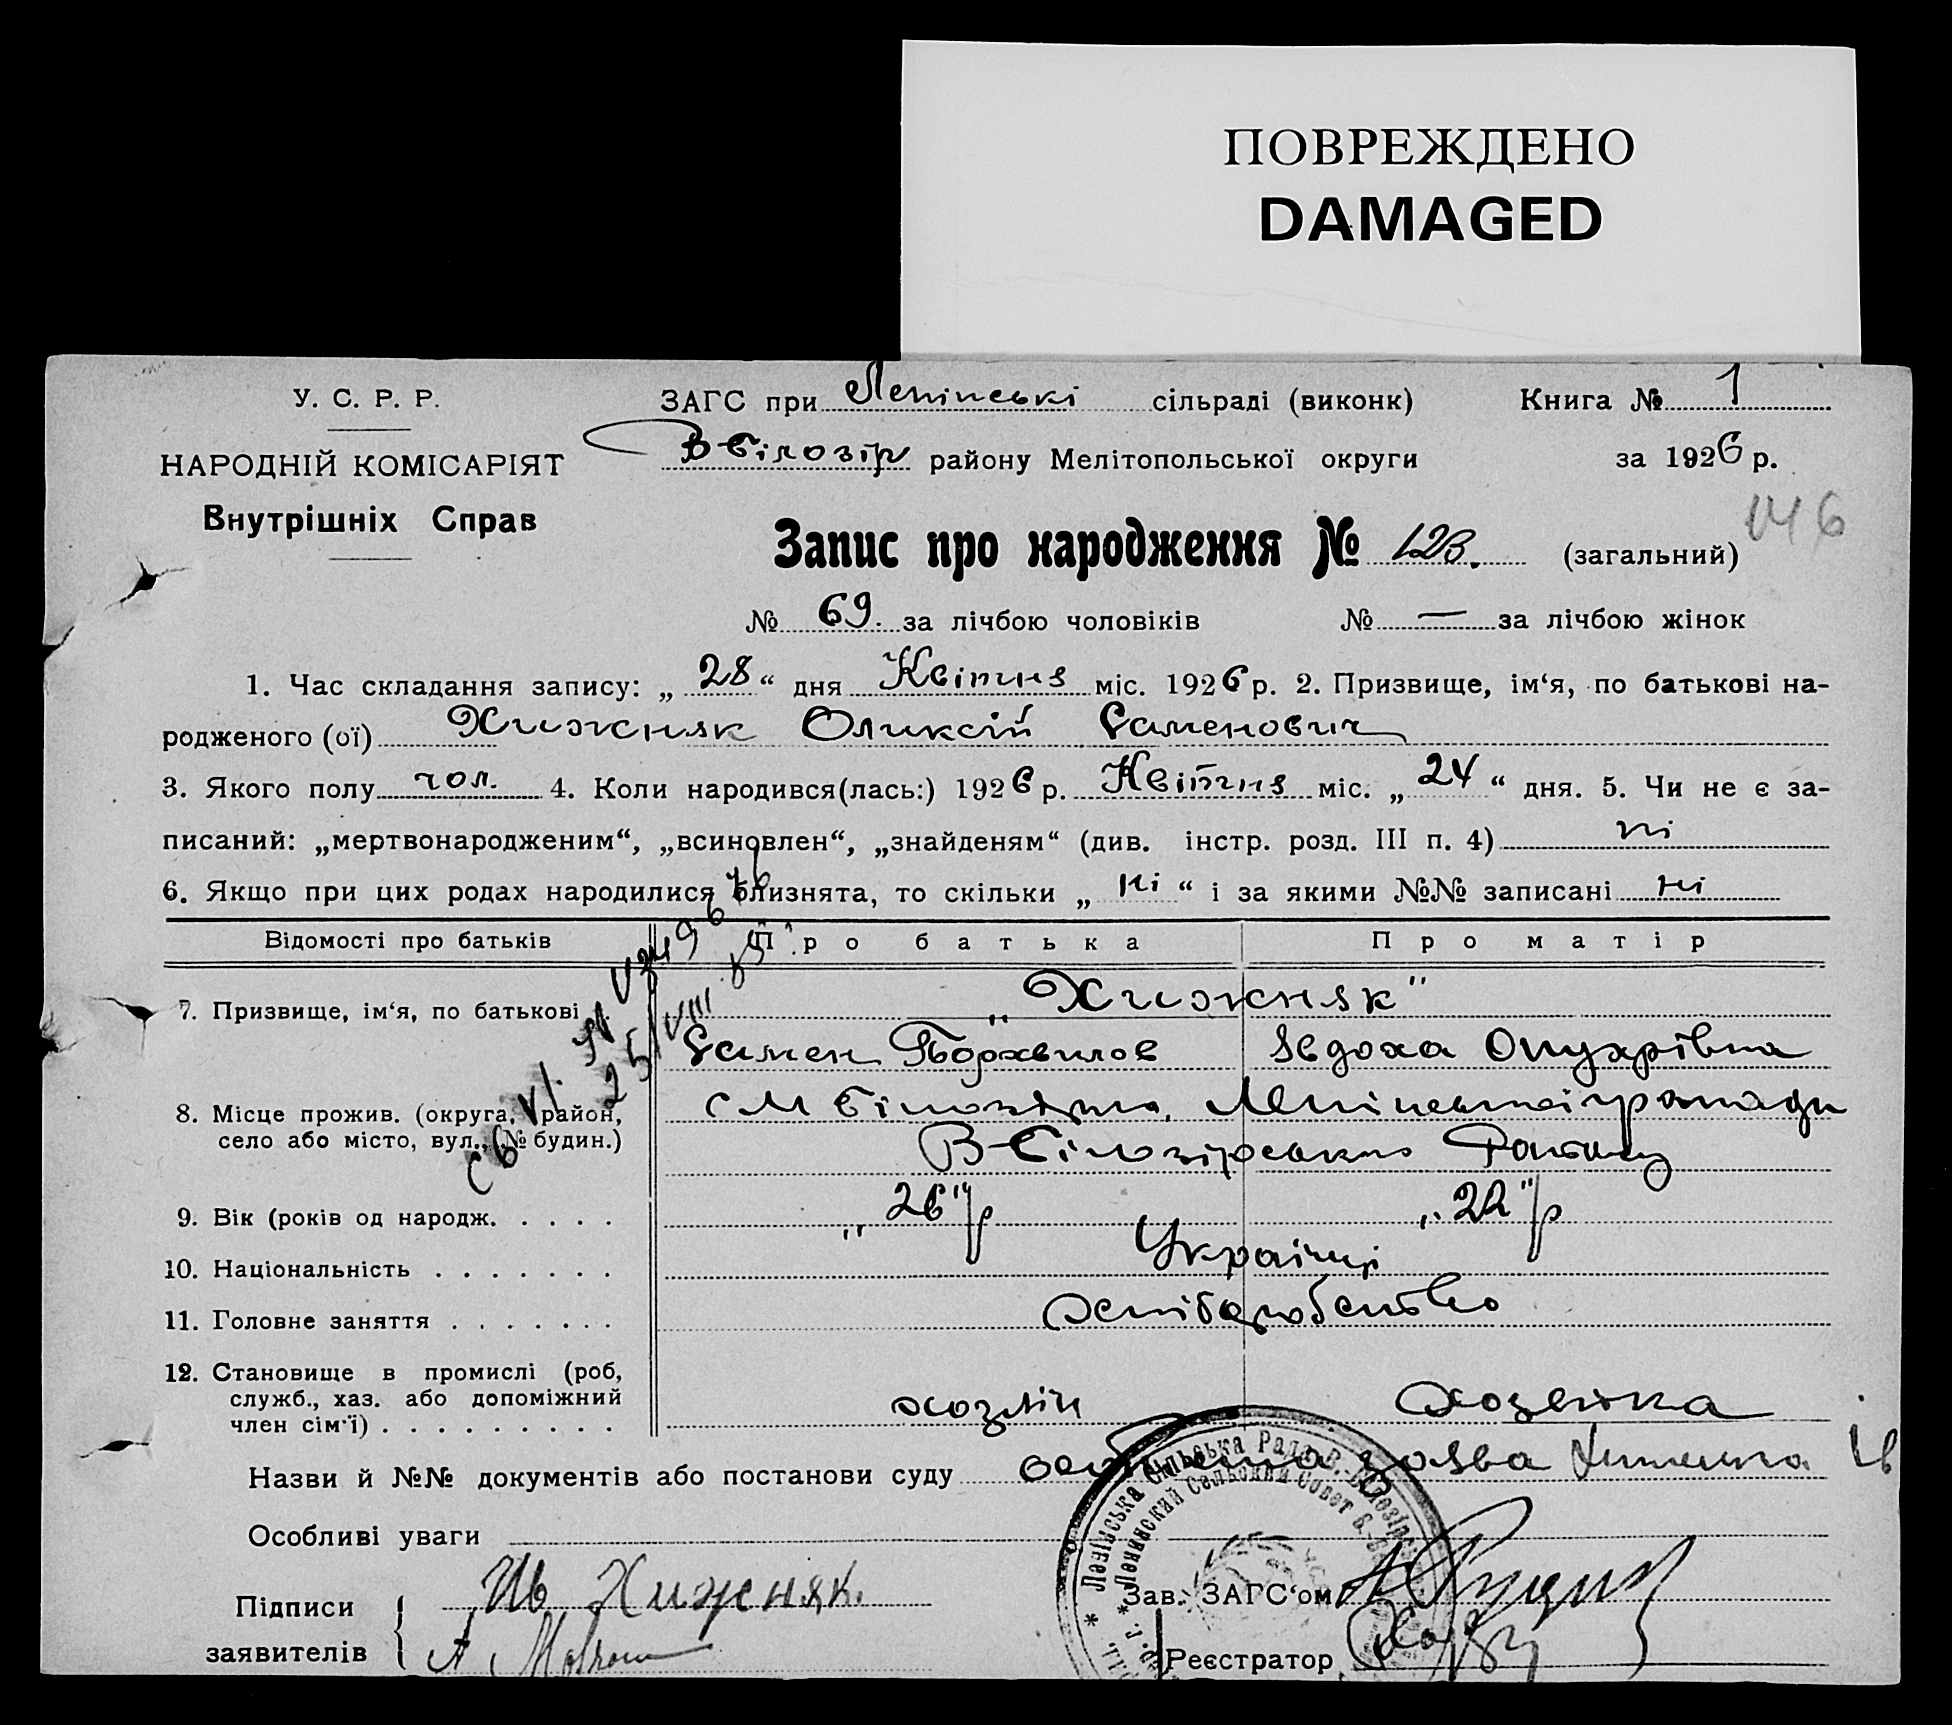 ПОВРЕЖДЕНО
DAMAGED
У. С. Р. Р.
ЗАГС при Ленінські сільраді (виконк)
Книга № 1
НАРОДНІЙ КОМІСАРІЯТ
В Білозір району Мелітопольської округи
за 1926 р.
Внутрішніх Справ
146
Запис про народження № 123. (загальний)
№ 69. за лічбою чоловіків № — за лічбою жінок
1. Час складання запису: „ 28 “ дня Квітня міс. 1926 р. 2. Призвище, ім‘я, по батькові на-
родженого (ої) Хижняк Оликсій Саменович
3. Якого полу чол. 4. Коли народився(лась:) 1926 р. Квітня міс. „ 24 “ дня. 5. Чи не є за-
писаний: „мертвонародженим“, „всиновлен“, „знайденям“ (див. інстр. розд. III п. 4) ні
6. Якщо при цих родах народилися близнята, то скільки „ ні “ і за якими №№ записані ні
Відомості про батьків Про батька Про матір
7. Призвище, ім‘я, по батькові „Хижняк"
Самен
8. Місце прожив. (округа, район,
село або місто, вул., № будин.)
В-Білозірського Району
9. Вік (років од народж. „26"р „22"р
10. Національність Українці
11. Головне заняття
12. Становище в промислі (роб,
служб., хаз. або допоміжний
член сім‘ї) хозяін хозяйка
Назви й №№ документів або постанови суду заява
Особливі уваги
Підписи Ів Хижняк.
заявителів
Зав. ЗАГС‘ом
Реєстратор
Ленінська Сільська Рада В. Білозір
Ленинский Сельский Совет В.